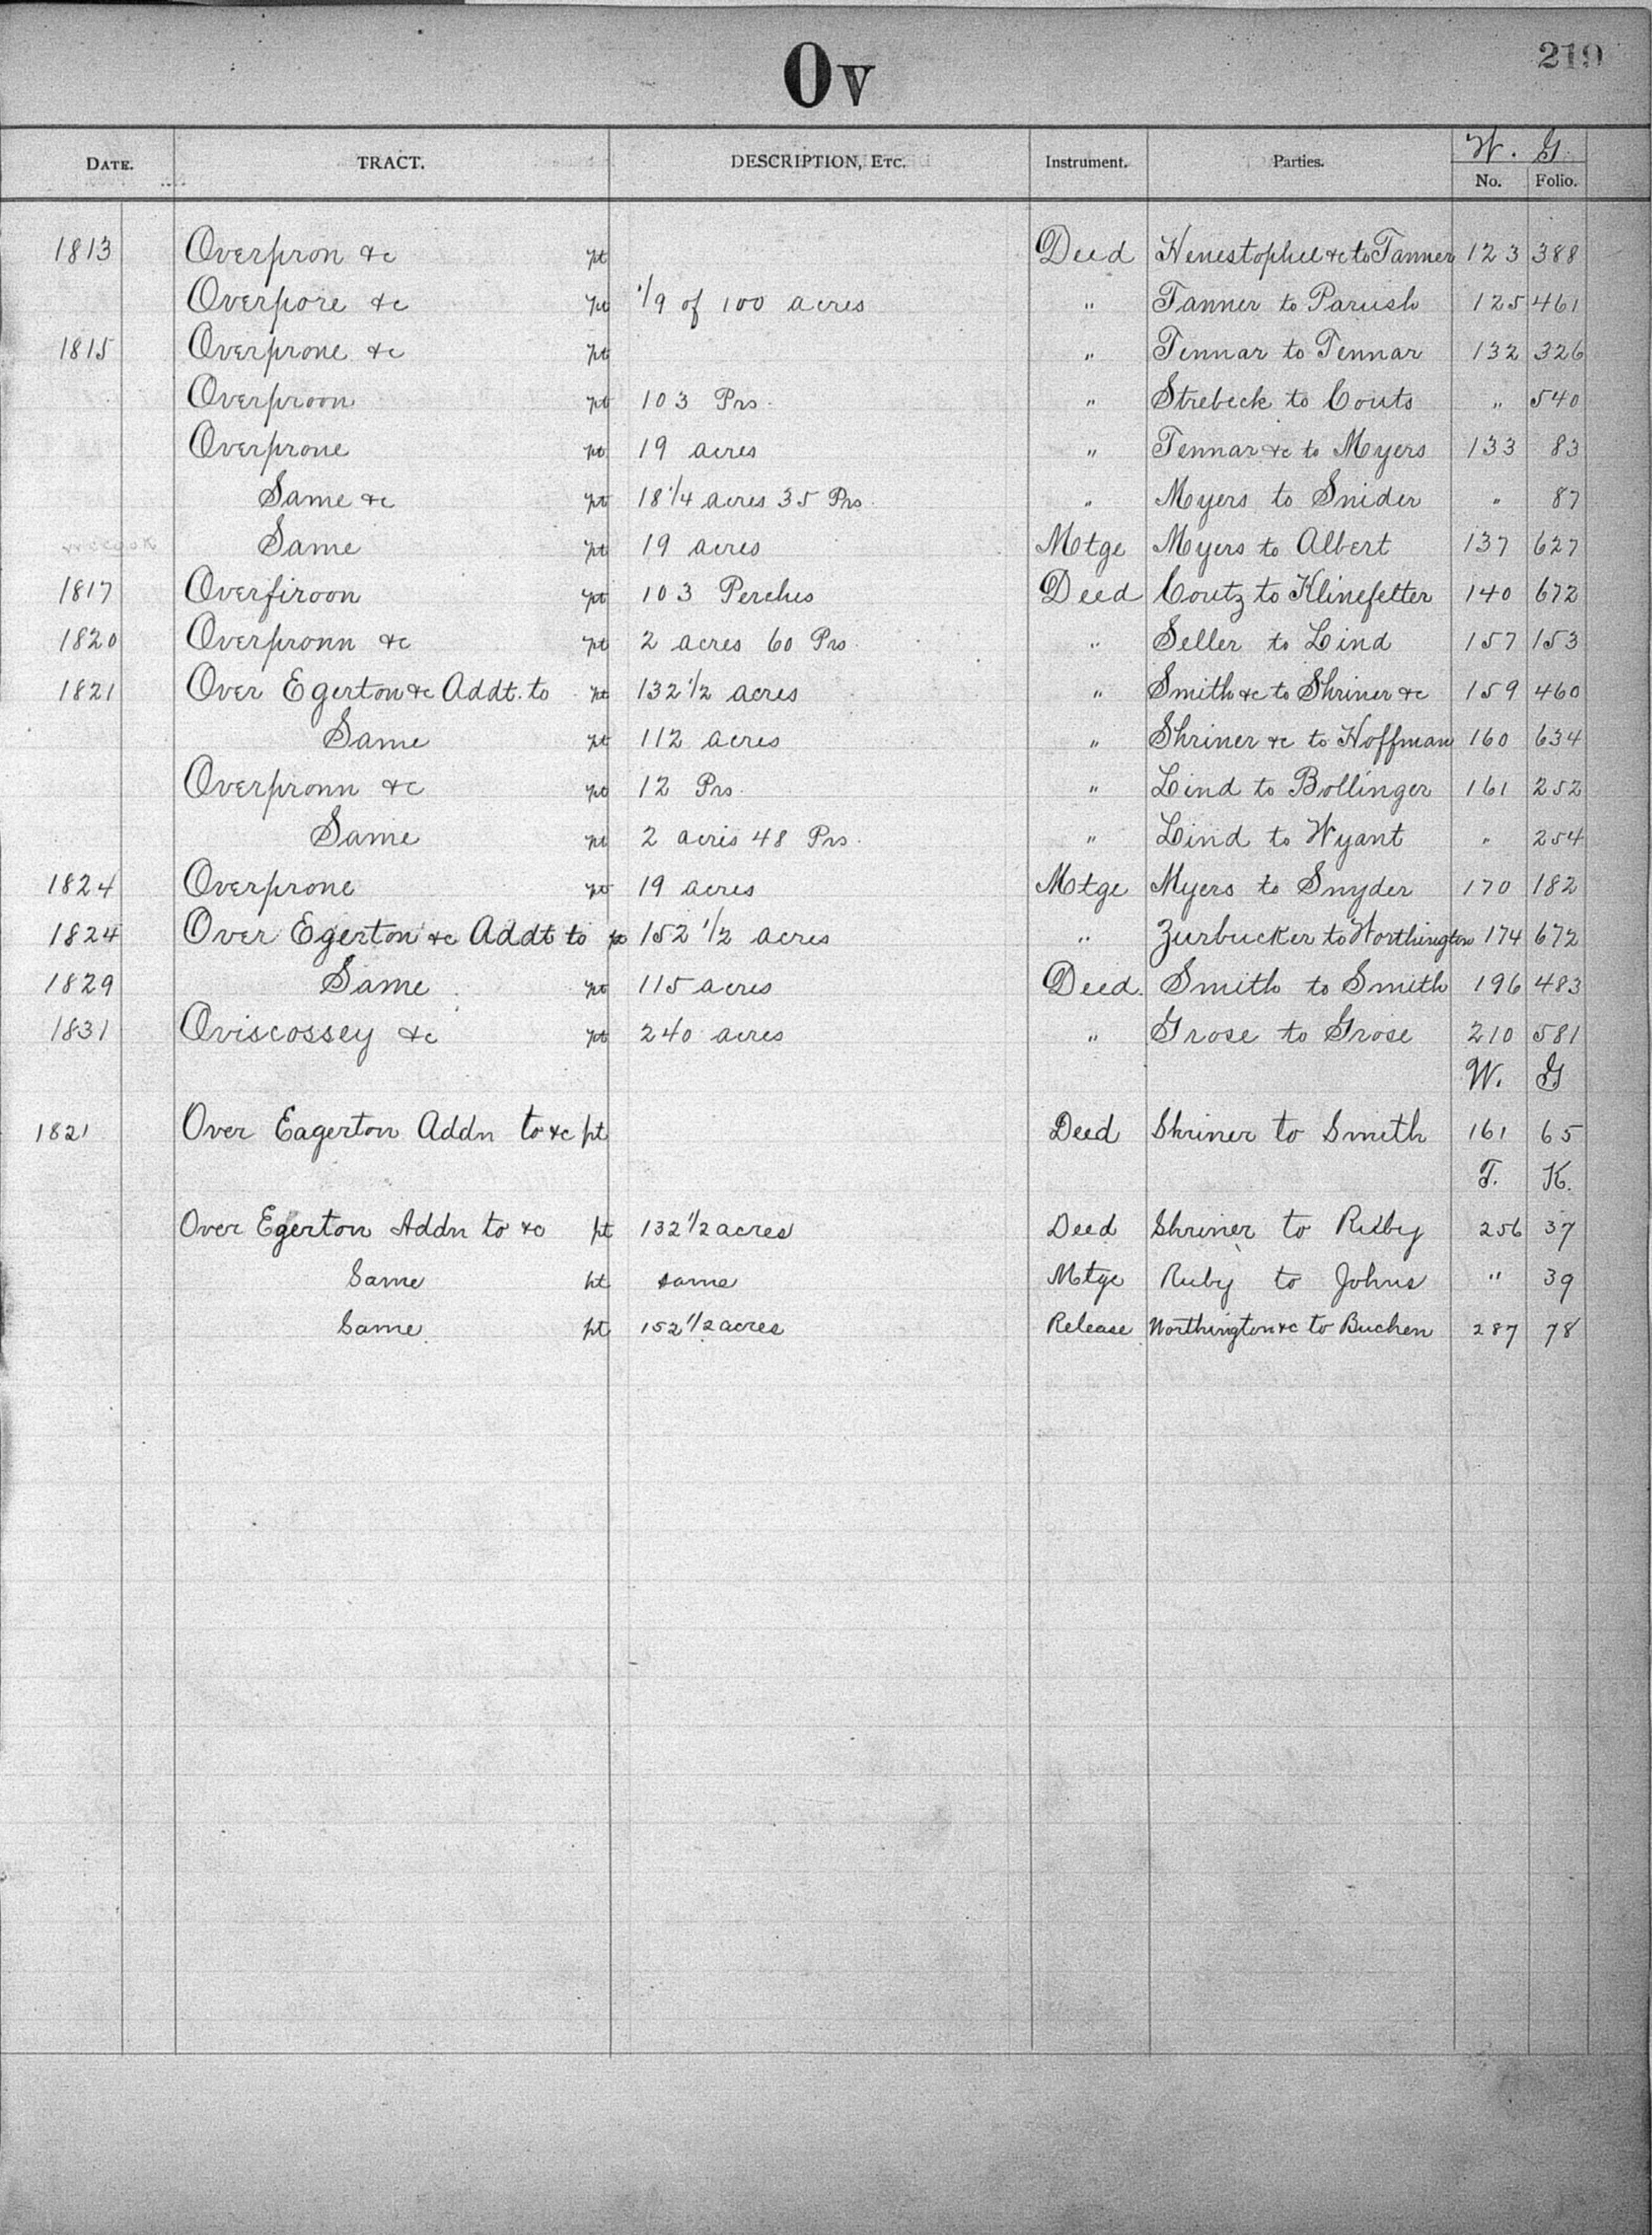 Ov
219
DATE. TRACT. DESCRIPTION, ETC. Instrument. Parties. W. G. No. Folio.
1813 Overpron &c pt Deed Henestophel &c to Tanner 123 388
Overpore &c pt 1/9 of 100 acres " Tanner to Parish 125 461
1815 Overprone &c pt " Tennar to Tennar 132 326
Overproon pt 103 Prs. " Strebeck to Couts " 540
Overprone pt 19 acres " Tennar &c to Myers 133 83
Same &c pt 18 1/4 acres 35 Prs. " Myers to Snider " 87
Same pt 19 acres Motge Myers to Albert 137 627
1817 Overfiroon pt 103 Perches Deed Coutz to Klinefelter 140 672
1820 Overpronn &c pt 2 acres 60 Prs. " Seller to Lind 157 153
1821 Over Egerton &c Addt. to pt 132 1/2 acres " Smith &c to Shriner &c 159 460
Same pt 112 acres " Shriner &c to Hoffman 160 634
Overpronn &c pt 12 Prs. " Lind to Bollinger 161 252
Same pt 2 acres 48 Prs. " Lind to Wyant " 254
1824 Overprone pt 19 acres Motge Myers to Snyder 170 182
1824 Over Egerton &c Addt to pt 152 1/2 acres " Zurbucker to Worthington 174 672
1829 Same pt 115 acres Deed. Smith to Smith 196 483
1831 Oviscossey &c pt 240 acres " Grose to Grose 210 581
W. G
1821 Over Eagerton Addn to &c pt Deed Shriner to Smith 161 65
T. K.
Over Egerton Addn to &c pt 132 1/2 acres Deed Shriner to Ruby 256 37
Same pt same Mtge Ruby to Johns " 39
Same pt 152 1/2 acres Release Worthington &c to Buchen 287 78